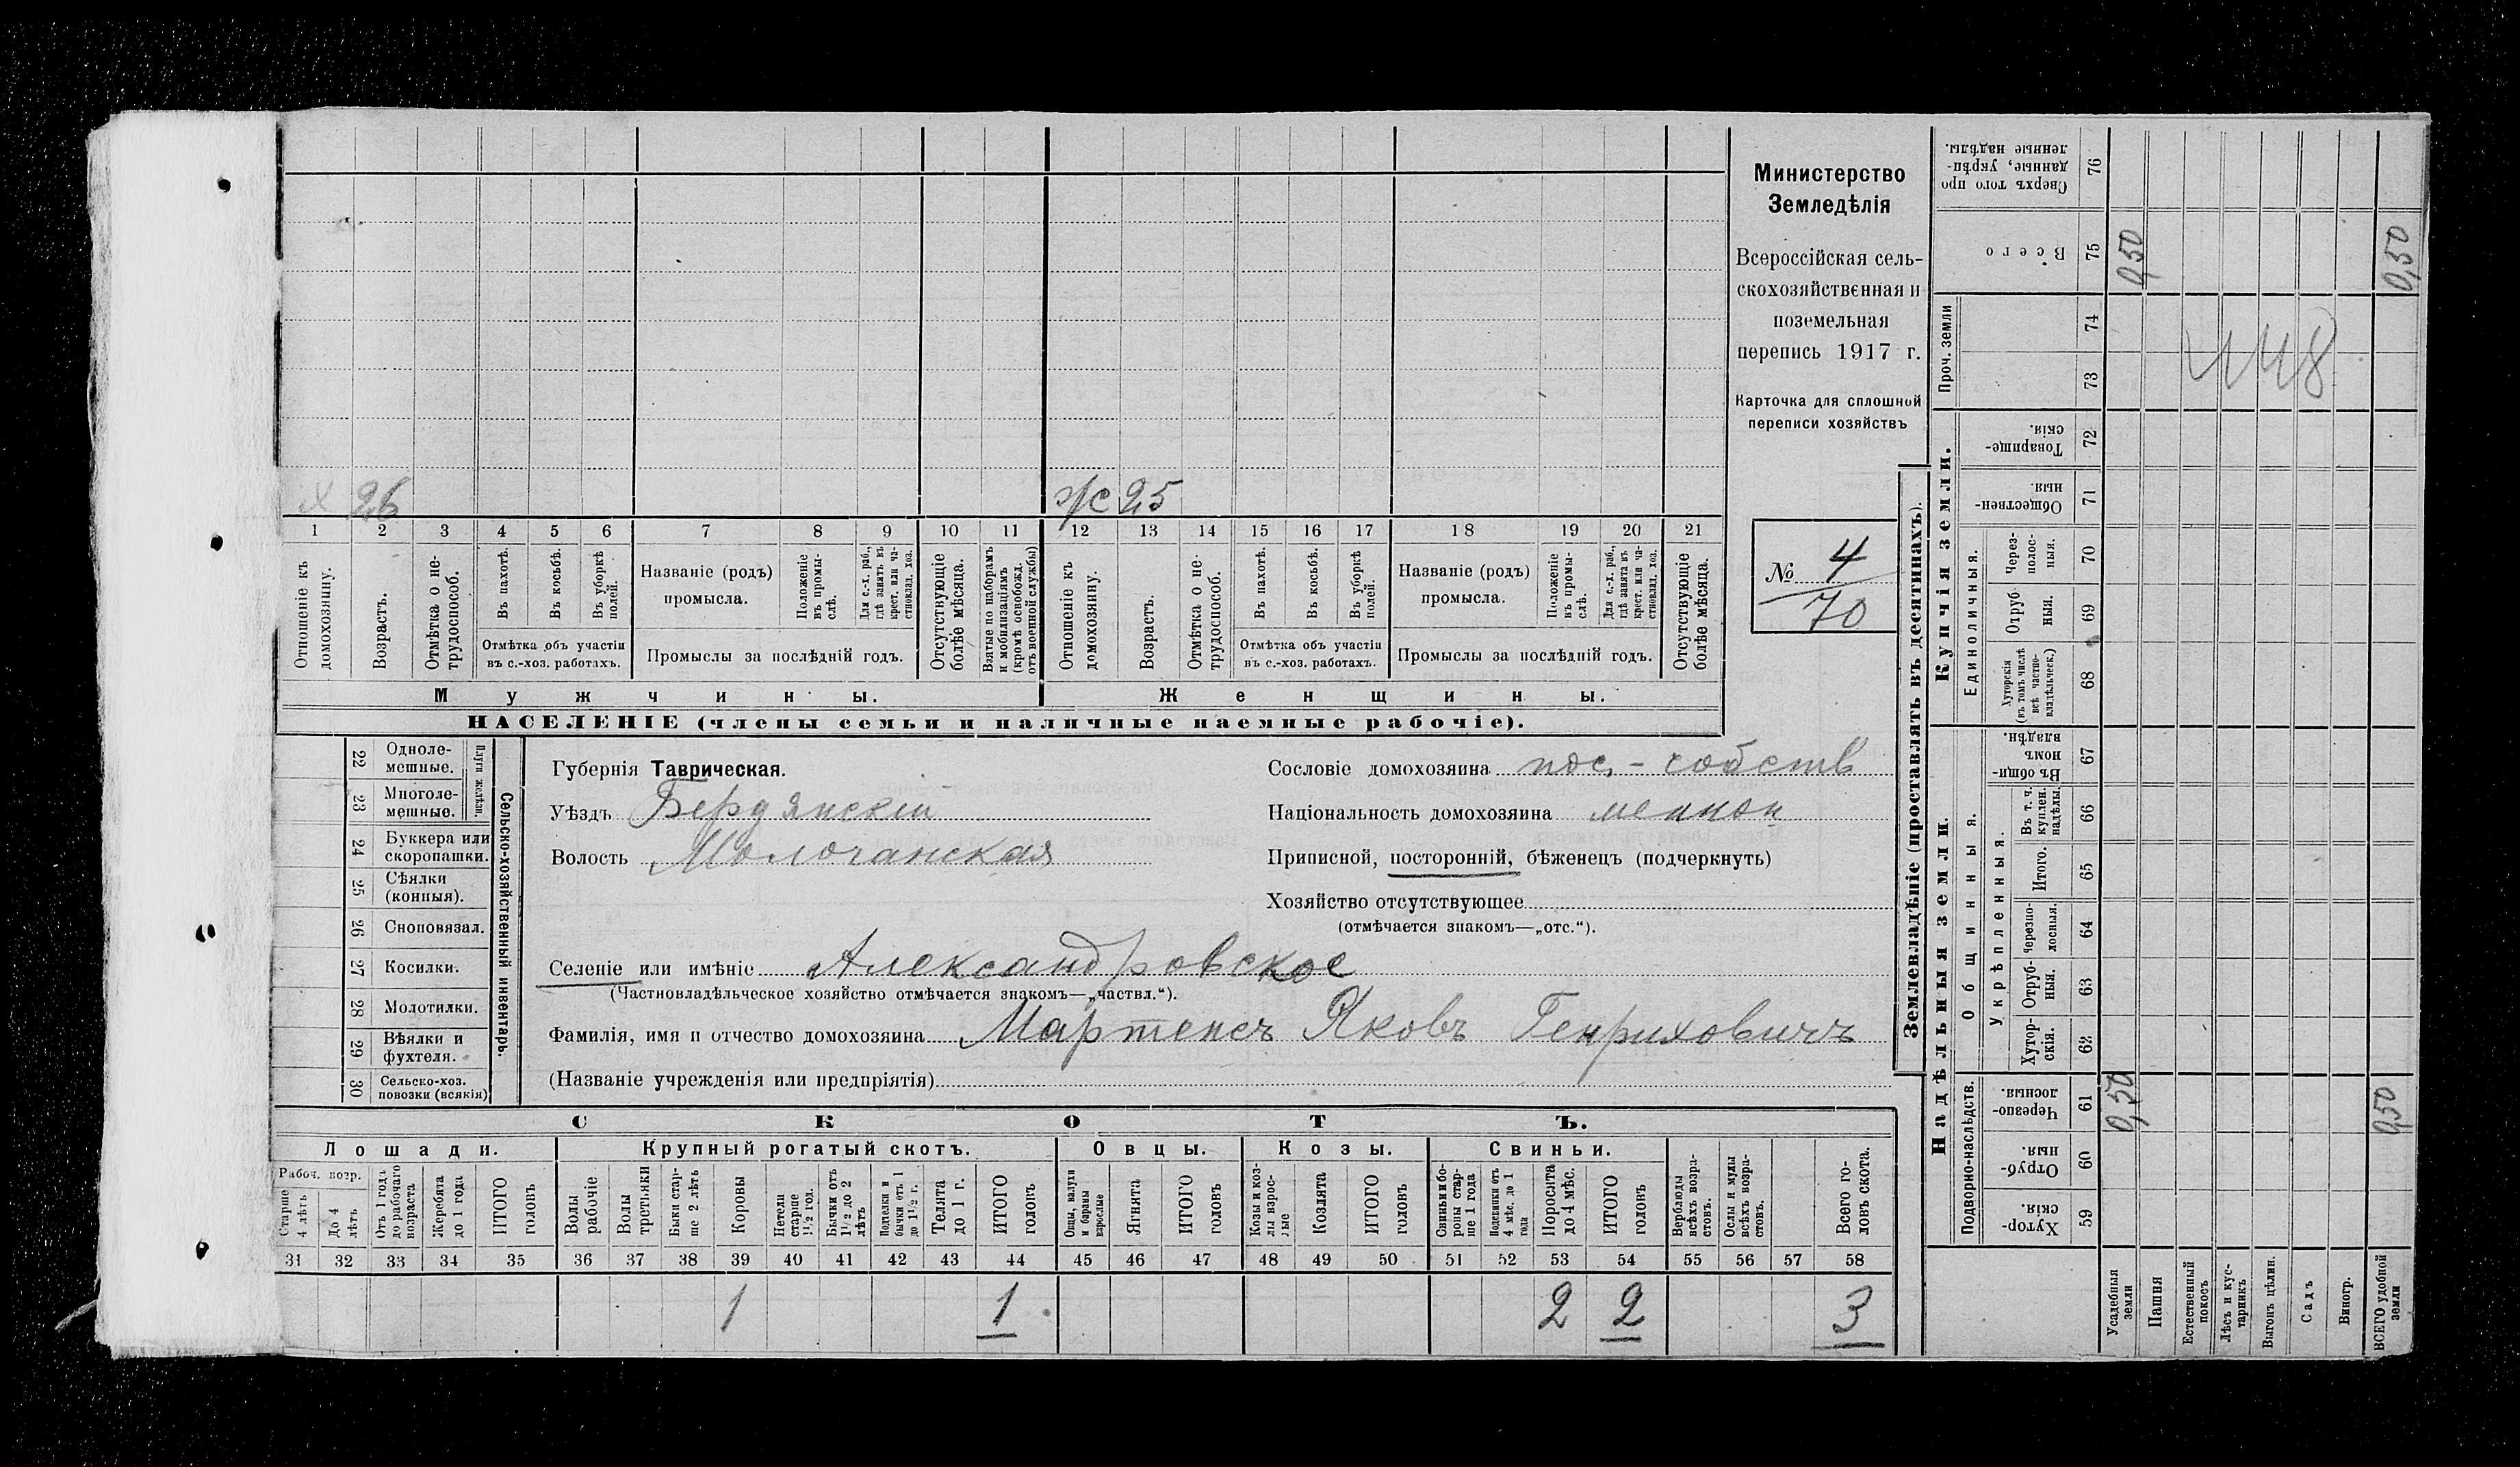 х 26
ж 25
1 2 3 4 5 6 7 8 9 10 11 12 13 14 15 16 17 18 19 20 21
Отношеніе къ домохозяину.
Возрастъ.
Отмѣтка о нетрудоспособ.
Въ пахотѣ.
Въ косьбѣ.
Въ уборкѣ полей.
Отмѣтка объ участіи
въ с.-хоз. работахъ.
Названіе (родъ)
промысла.
Положеніе въ промыслѣ.
Для с.-х. раб., гдѣ занятъ въ крест. или частновлад. хоз.
Промыслы за послѣдній годъ.
Отсутствующіе болѣе мѣсяца.
Взятые по наборамъ и мобилизаціямъ (кромѣ освобожд. отъ военной службы)
Отношеніе къ домохозяину.
Возрастъ.
Отмѣтка о нетрудоспособ.
Въ пахотѣ.
Въ косьбѣ.
Въ уборкѣ полей.
Отмѣтка объ участіи
въ с.-хоз. работахъ.
Названіе (родъ)
промысла.
Положеніе въ промыслѣ.
Для с.-х. раб., гдѣ занята въ крест. или частновлад. хоз.
Промыслы за послѣдній годъ.
Отсутствующіе болѣе мѣсяца.
Мужчины.
Женщины.
НАСЕЛЕНІЕ (члены семьи и наличные наемные рабочіе).
Министерство
Земледѣлія
Всероссійская сель-
скохозяйственная и
поземельная
перепись 1917 г.
Карточка для сплошной
переписи хозяйствъ
№ 4
70
22 Одноле-
мешные.
23 Многоле-
мешные.
Плуги желѣзн.
24 Буккера или
скоропашки.
25 Сѣялки
(конныя).
26 Сноповязал.
27 Косилки.
28 Молотилки.
29 Вѣялки и
фухтеля.
30 Сельско-хоз.
повозки (всякія)
Сельско-хозяйственный инвентарь.
Губернія Таврическая.
Уѣздъ Бердянскій
Волость Молочанская
Сословіе домохозяина пос.-собств
Національность домохозяина меннон
Приписной, посторонній, бѣженецъ (подчеркнуть)
Хозяйство отсутствующее
(отмѣчается знакомъ—„отс.“).
Селеніе или имѣніе Александровское
(Частновладѣльческое хозяйство отмѣчается знакомъ—„частвл.“).
Фамилія, имя и отчество домохозяина Мартенсъ Яковъ Генриховичъ
(Названіе учрежденія или предпріятія)
СКОТЪ.
Лошади. Крупный рогатый скотъ. Овцы. Козы. Свиньи.
Рабоч. возр.
Старше 4 лѣтъ
До 4 лѣтъ
Отъ 1 года до рабочаго возраста
Жеребята до 1 года
ИТОГО головъ
Волы рабочіе
Волы третьяки
Быки старше 2 лѣтъ
Коровы
Нетели старше 1½ год.
Бычки отъ 1½ до 2 лѣтъ
Подтелки и бычки отъ 1 до 1½ г.
Телята до 1 г.
ИТОГО головъ
Овцы, валухи и бараны взрослые
Ягнята
ИТОГО головъ
Козы и козлы взрослые
Козлята
ИТОГО головъ
Свиньи и боровы старше 1 года
Подсвинки отъ 4 мѣс. до 1 года
Поросята до 4 мѣс.
ИТОГО головъ
Верблюды всѣхъ возрастовъ.
Ослы и мулы всѣхъ возрастовъ.
Всего головъ скота.
31 32 33 34 35 36 37 38 39 40 41 42 43 44 45 46 47 48 49 50 51 52 53 54 55 56 57 58
1 1 2 2 3
Землевладѣніе (проставлять въ десятинахъ).
Надѣльныя земли.
Купчія земли.
Проч. земли
Подворно-наслѣдств.
Общинныя.
Укрѣпленныя.
Единоличныя.
Хуторскія. 59
Отрубныя. 60
Черезполосныя. 61
Хуторскія. 62
Отрубныя. 63
Черезполосныя. 64
Итого. 65
Въ т. ч. куплен. надѣлы. 66
Въ общинномъ владѣн. 67
Хуторскія (въ томъ числѣ всѣ частновладѣльческ.) 68
Отрубныя. 69
Черезполосныя. 70
Общественныя. 71
Товарищескія. 72
73
74
Всего 75
Сверхъ того проданные, укрѣпленные надѣлы. 76
Усадебныя земли 0,50 0,50
Пашня
Естественный покосъ
Лѣсъ и кустарникъ
Выгонъ цѣлин.
Садъ
Виногр.
ВСЕГО удобной земли 0,50 0,50